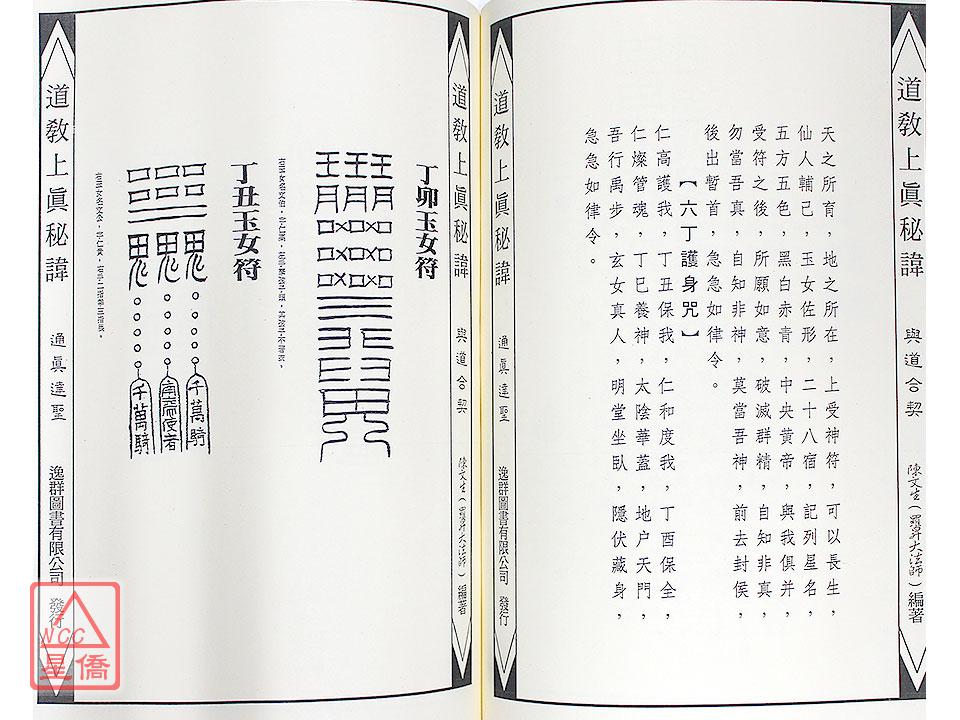 道教上眞秘諱 與道合契 陳文生(羅昇大法師)編著
天之所育，地之所在，上受神符，可以長生，
仙人輔己，玉女佐形，二十八宿，記列星名，
五方五色，黑白赤青，中央黄帝，與我俱并，
受符之後，所願如意，破滅群精，自知非真，
勿當吾真，自知非神，莫當吾神，前去封侯，
後出暫首，急急如律令。
【六丁護身咒】
仁高護我，丁丑保我，仁和度我，丁酉保全，
仁燦管魂，丁巳養神，太陰華蓋，地户天門，
吾行禹步，玄女真人，明堂坐臥，隱伏藏身，
急急如律令。
道教上眞秘諱 通眞達聖 逸群圖書有限公司 發行
道教上眞秘諱 與道合契 陳文生(羅昇大法師)編著
丁卯玉女符
丁丑玉女符
千萬騎
使者
千萬騎
道教上眞秘諱 通眞達聖 逸群圖書有限公司 發行
NCC
星僑